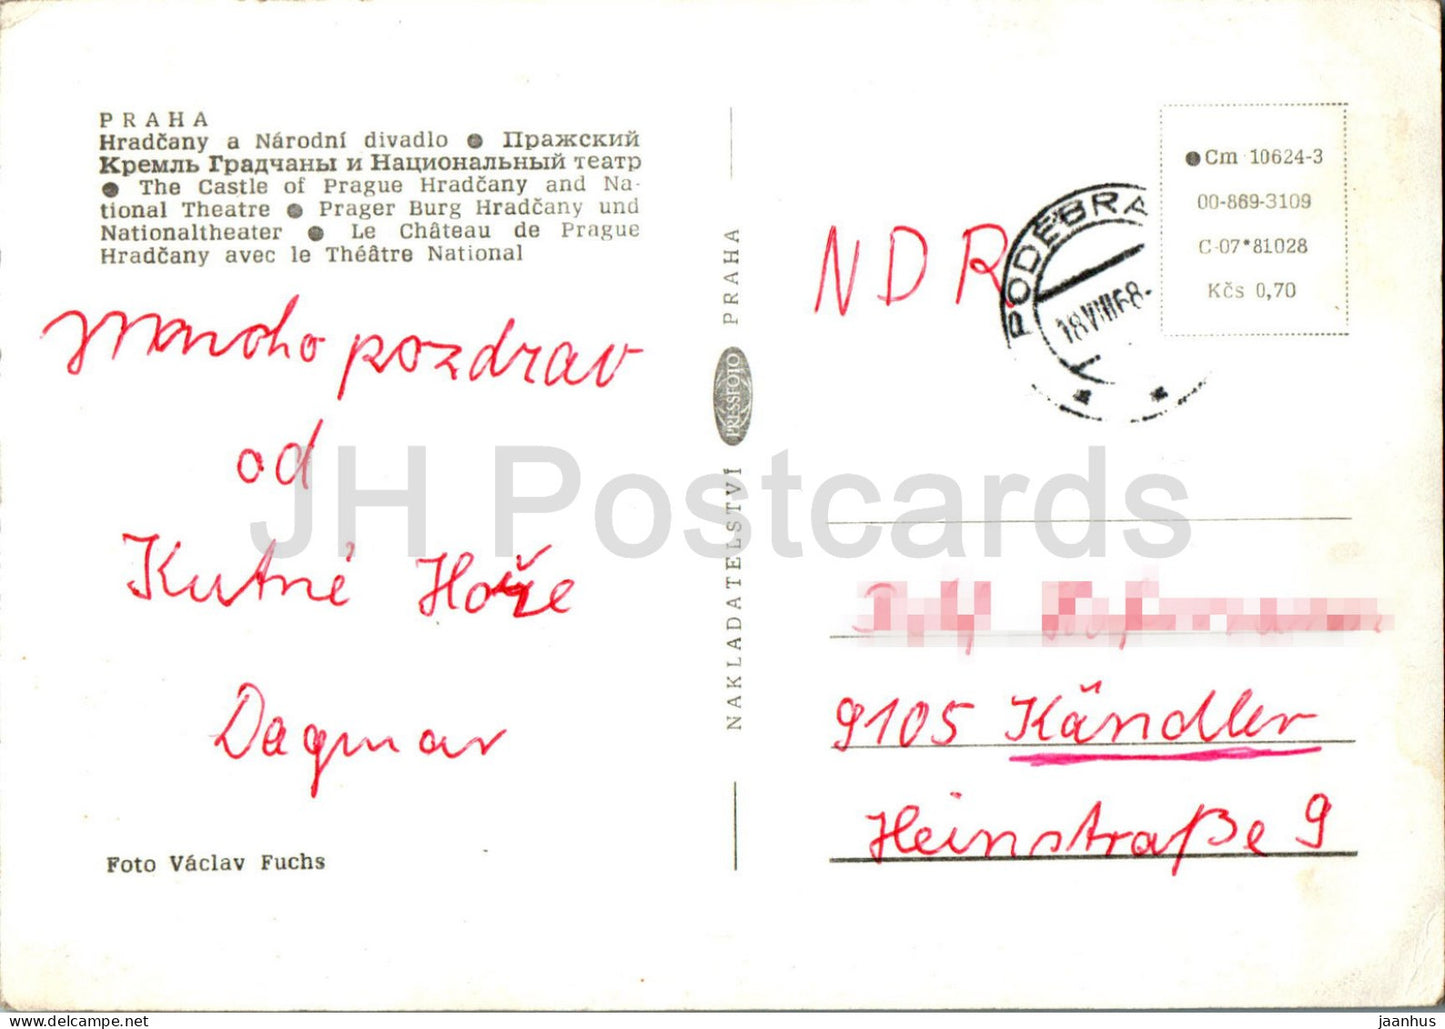 PRAHA
Hradčany a Národní divadlo ● Пражский
Кремль Градчаны и Национальный театр
● The Castle of Prague Hradčany and Na-
tional Theatre ● Prager Burg Hradčany und
Nationaltheater ● Le Château de Prague
Hradčany avec le Théâtre National
mnoho pozdrav
od
Kutné Hoře
Dagmar
Foto Václav Fuchs
NAKLADATELSTVÍ PRESSFOTO PRAHA
NDR
PODĚBRA
18.VIII.68-
●Cm 10624-3
00-869-3109
C-07*81028
Kčs 0,70
9105 Kändler
Heinstraße 9
JH Postcards
https://www.delcampe.net/en_US/collectibles/store/jaanhus
jaanhus